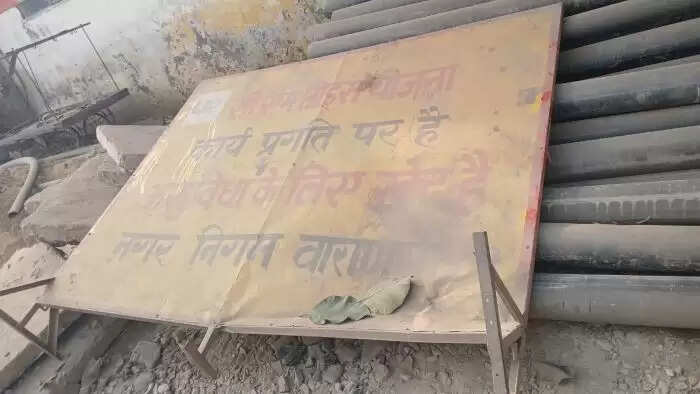 योजना
कार्य प्रगति पर है
असुविधा के लिए खेद है
नगर निगम